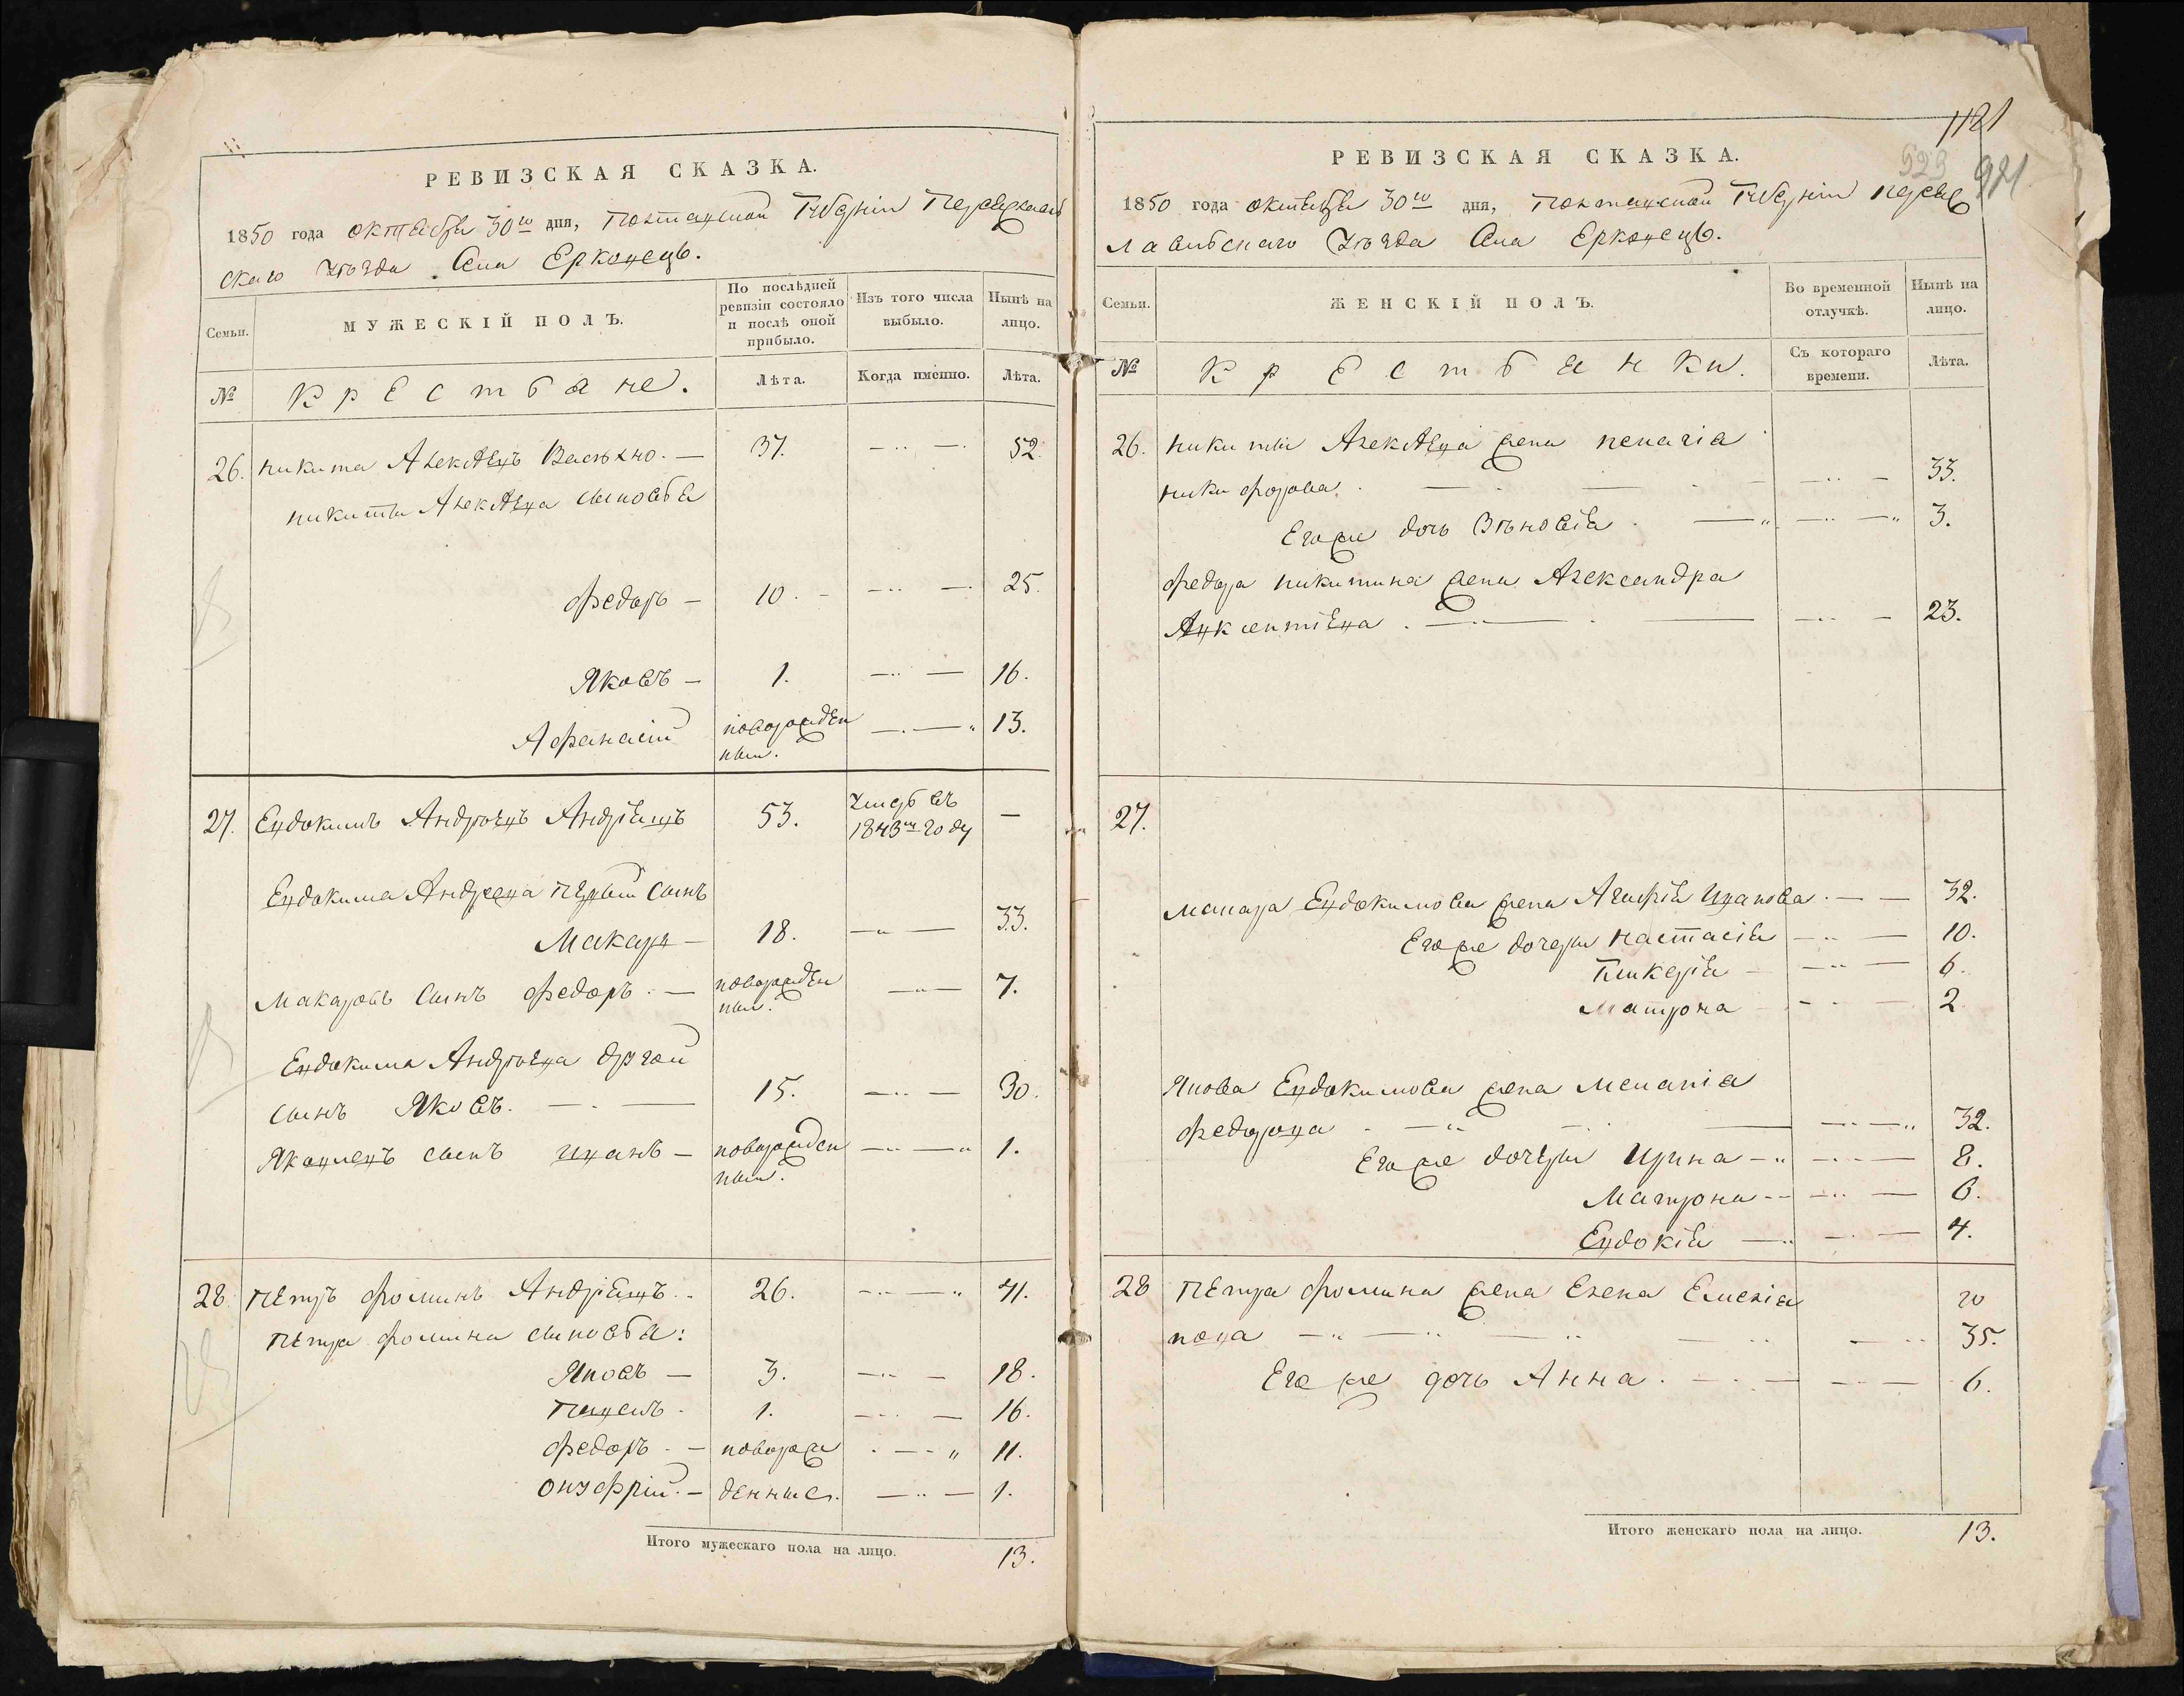 РЕВИЗСКАЯ СКАЗКА.
1850 года октября 30го дня, Полтавской Губерніи Переяслав
скаго уѣзда Села Ерковецъ.
Семьи.
МУЖЕСКІЙ ПОЛЪ.
По послѣдней ревизіи состояло и послѣ оной прибыло.
Изъ того числа выбыло.
Нынѣ на лицо.
№
Крестьяне.
Лѣта.
Когда именно.
Лѣта.
26. Никита Алексѣевъ 37. 52.
Никиты Алексѣева сыновья
Федоръ 10. 25.
Яковъ 1. 16.
Афанасій новорожден
ный. 13.
27. Евдокимъ Андрѣевъ Андріецъ 53. умеръ въ
1843м году —
Евдокима Андреева первый сынъ
Макаръ 18. 33.
Макаровъ сынъ Федоръ новорожден
ный. 7.
Евдокима Андрѣева другой
сынъ Яковъ. 15. 30.
Яковлевъ сынъ Иванъ новорожден
ный. 1.
28. Петръ Фоминъ Андріецъ 26. 41.
Петра Фомина сыновья:
Яковъ 3. 18.
Павелъ 1. 16.
Федоръ новорож 11.
Онуфрій. денные. 1.
Итого мужескаго пола на лицо. 13.
1121
523
921
РЕВИЗСКАЯ СКАЗКА.
1850 года октября 30го дня, Полтавской Губерніи Переяс
лавьскаго уѣзда Села Ерковецъ.
Семьи.
ЖЕНСКІЙ ПОЛЪ.
Во временной отлучкѣ.
Нынѣ на лицо.
№
Крестьянки.
Съ котораго времени.
Лѣта.
26. Никиты Алексѣева жена Пелагія
Никифорова. 33.
Его же дочь Зѣновія 3.
Федора Никитина жена Александра
Авксентіева. 23.
27.
Макара Евдокимова жена Агафія Иванова. 32.
Его же дочери Настасія 10.
Гликерія 6.
Матрона 2
Якова Евдокимова жена Меланія
Федорова 32.
Его же дочери Ирина 8.
Матрона 6.
Евдокія 4.
28 Петра Фомина жена Елена Емелія
нова 35.
Его же дочь Анна. 6.
Итого женскаго пола на лицо. 13.